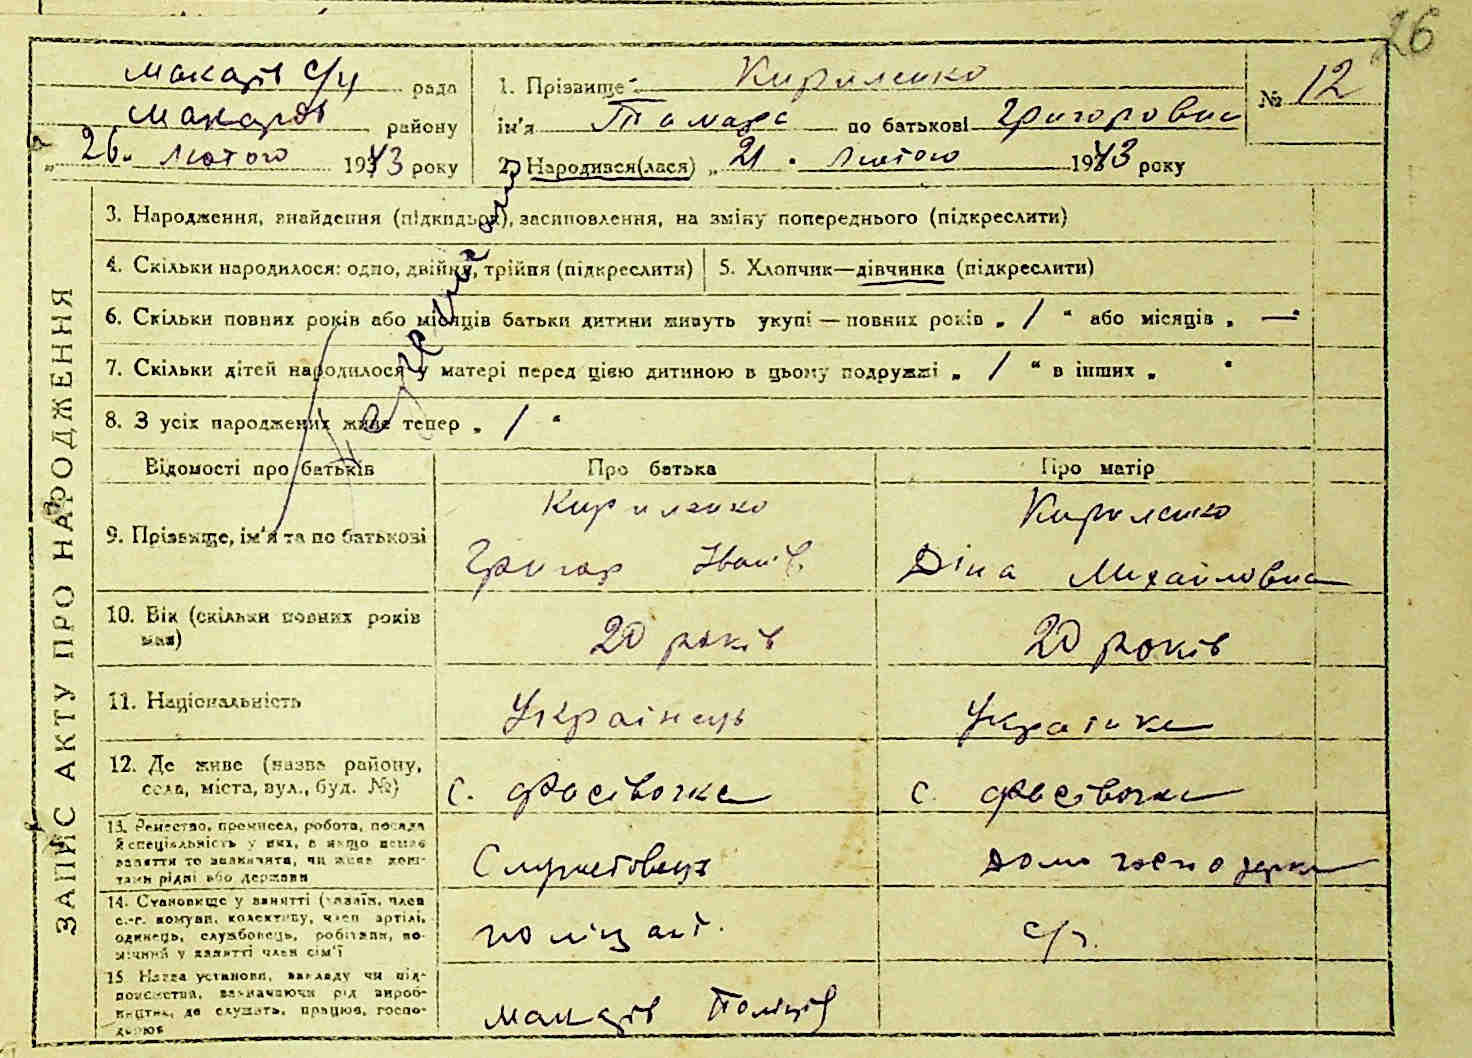 26
Макарів с/у рада
Макарів району
„ 26. лютого 1943 року
1. Прізвище Кириленко
ім'я Тамара по батькові Григоровна
2. Народився(лася) „ 21. лютого 1943 року
№ 12
ЗАПИС АКТУ ПРО НАРОДЖЕННЯ
3. Народження, знайдення (підкидька), засиновлення, на зміну попереднього (підкреслити)
4. Скільки народилося: одно, двійня, трійня (підкреслити)
5. Хлопчик—дівчинка (підкреслити)
6. Скільки повних років або місяців батьки дитини живуть укупі — повних років „ 1 “ або місяців „ — “
7. Скільки дітей народилося у матері перед цією дитиною в цьому подружжі „ 1 “ в інших „ “
8. З усіх народжених живе тепер „ 1 “
Відомості про батьків
Про батька
Про матір
9. Прізвище, ім'я та по батькові
Кириленко
Григор Іванів.
Кириленко
Діна Михайловна
10. Вік (скільки повних років
має)
20 років
20 років
11. Національність
Українець
Українка
12. Де живе (назва району,
села, міста, вул., буд. №)
с. Фасівочка
с. Фасівочка
13. Ремество, промисел, робота, посада
й спеціальність у них, а якщо немає
заняття то зазначити, чи живе кош-
тами рідні або держави
Службовець
домогосподарка
14. Становище у занятті (хазяїн, член
с.-г. комуни, колективу, член артілі,
одинець, службовець, робітник, по-
мічний у занятті член сім'ї
поліцай.
с/г.
15. Назва установи, закладу чи під-
приємства, зазначаючи рід вироб-
ництва, де служить, працює, госпо-
дарює
Макарів Поліція